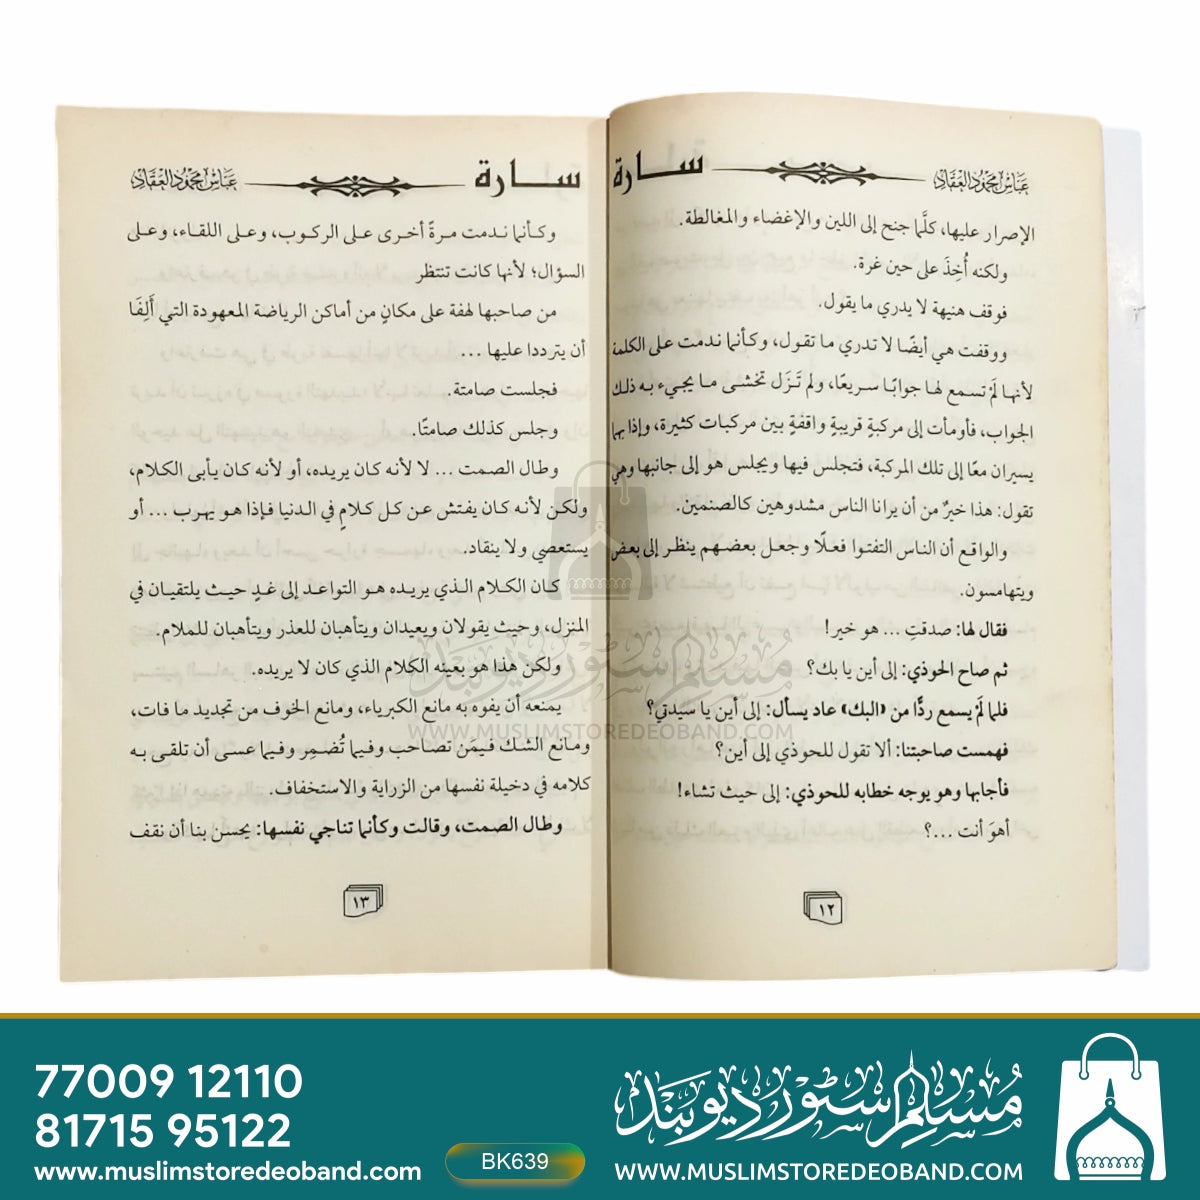 عباس محمود العقاد
سارة
الإصرار عليها، كلَّما جنح إلى اللين والإغضاء والمغالطة.
ولكنه أُخِذَ على حين غرة.
فوقف هنيهة لا يدري ما يقول.
ووقفت هي أيضًا لا تدري ما تقول، وكأنما ندمت على الكلمة
لأنها لَمْ تسمع لها جوابًا سريعًا، ولم تَزَل تخشى ما يجيء به ذلك
الجواب، فأومأت إلى مركبةٍ قريبةٍ واقفةٍ بين مركبات كثيرة، وإذا بهما
يسيران معًا إلى تلك المركبة، فتجلس فيها ويجلس هو إلى جانبها وهي
تقول: هذا خيرٌ من أن يرانا الناس مشدوهين كالصنمين.
والواقع أن الناس التفتوا فعلًا وجعل بعضهم ينظر إلى بعض
ويتهامسون.
فقال لها: صدقتِ ... هو خير!
ثم صاح الحوذي: إلى أين يا بك؟
فلما لَمْ يسمع ردًّا من «البك» عاد يسأل: إلى أين يا سيدتي؟
فهمست صاحبتنا: ألا تقول للحوذي إلى أين؟
فأجابها وهو يوجه خطابه للحوذي: إلى حيث تشاء!
أهوَ أنت ...؟
١٢
عباس محمود العقاد
سارة
وكأنما ندمت مرةً أخرى على الركوب، وعلى اللقاء، وعلى
السؤال؛ لأنها كانت تنتظر
من صاحبها لهفة على مكانٍ من أماكن الرياضة المعهودة التي أَلِفَا
أن يترددا عليها ...
فجلست صامتة.
وجلس كذلك صامتًا.
وطال الصمت ... لا لأنه كان يريده، أو لأنه كان يأبى الكلام،
ولكن لأنه كان يفتش عن كل كلامٍ في الدنيا فإذا هو يهرب ... أو
يستعصي ولا ينقاد.
كان الكلام الذي يريده هو التواعد إلى غدٍ حيث يلتقيان في
المنزل، وحيث يقولان ويعيدان ويتأهبان للعذر ويتأهبان للملام.
ولكن هذا هو بعينه الكلام الذي كان لا يريده.
يمنعه أن يفوه به مانع الكبرياء، ومانع الخوف من تجديد ما فات،
ومانع الشك فيمَن تصاحب وفيما تُضمِر وفيما عسى أن تلقى به
كلامه في دخيلة نفسها من الزراية والاستخفاف.
وطال الصمت، وقالت وكأنما تناجي نفسها: يحسن بنا أن نقف
١٣
مسلم سٹور دیوبند
WWW.MUSLIMSTOREDEOBAND.COM
77009 12110
81715 95122
www.muslimstoredeoband.com
BK639
مسلم سٹور دیوبند
WWW.MUSLIMSTOREDEOBAND.COM